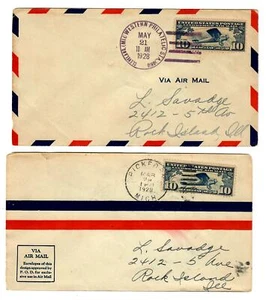 MAY
21
11 AM
1928
UNITED STATES POSTAGE
10 10
VIA AIR MAIL
L. Savadge
2412 - 5th Av
Rock Island Ill
1928
MICH
UNITED STATES POSTAGE
10 10
VIA
AIR MAIL
Envelopes of this
design approved by
P. O. D. for exclu-
sive use in Air Mail
L. Savadge
2412 - 5 Ave
Rock Island
Ill